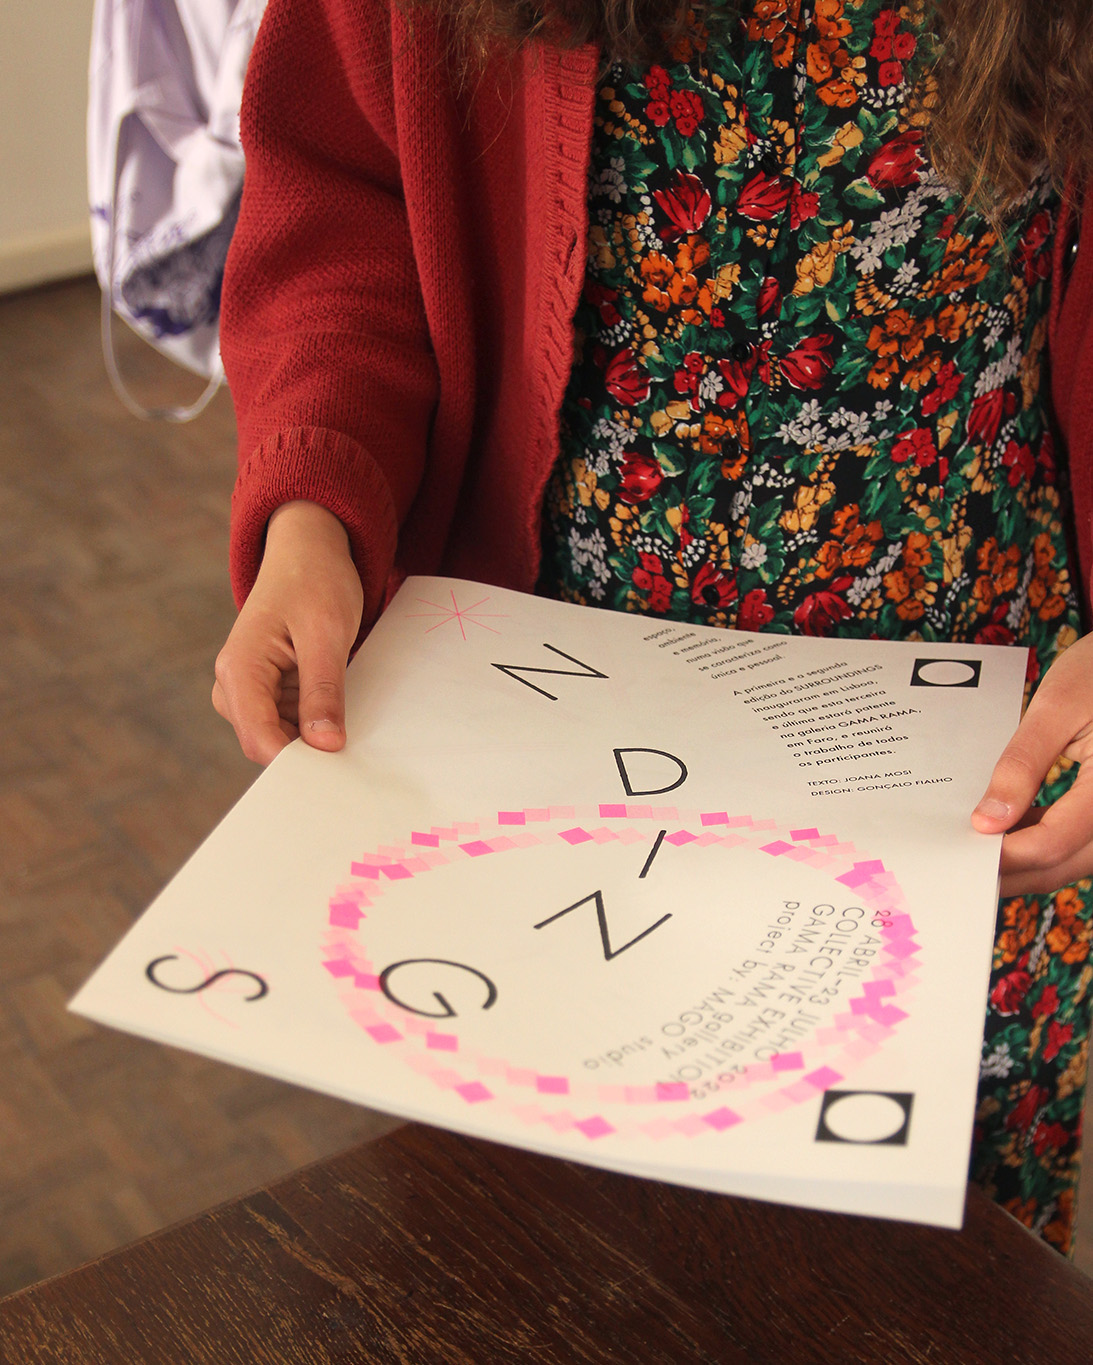 espaço,
ambiente
e memória,
numa visão que
se caracteriza como
única e pessoal.
A primeira e a segunda
edição do SURROUNDINGS
inauguraram em Lisboa,
sendo que esta terceira
e última estará patente
na galeria GAMA RAMA,
em Faro, e reunirá
o trabalho de todos
os participantes.
TEXTO: JOANA MOSI
DESIGN: GONÇALO FIALHO
N
D
I
N
G
S
28 ABRIL–23 JULHO 2022
COLLECTIVE EXHIBITION
GAMA RAMA gallery
project by: MAGO studio